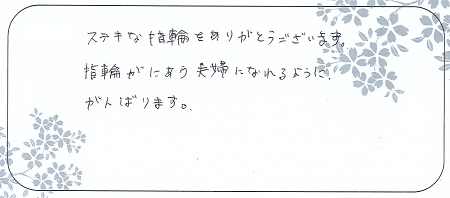 ステキな指輪をありがとうございます。
指輪がにあう夫婦になれるように、
がんばります。